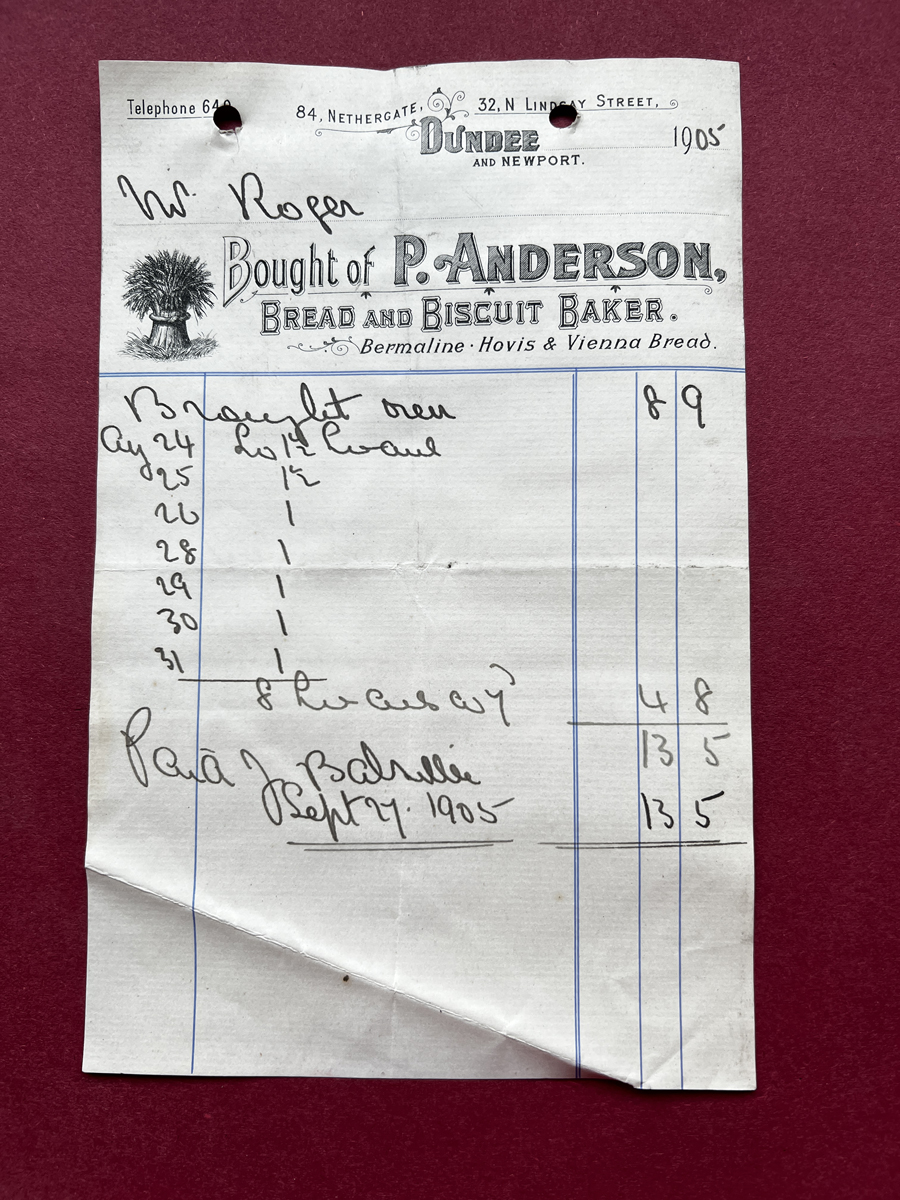 Telephone 640
84, NETHERGATE, 32, N LINDSAY STREET,
DUNDEE
AND NEWPORT.
1905
Mr Roger
Bought of P. ANDERSON,
BREAD AND BISCUIT BAKER.
Bermaline · Hovis & Vienna Bread.
Brought over 8 9
Aug 24 1½
25 1½
26 1
28 1
29 1
30 1
31 1
8 Loaves 4 8
13 5
Paid J
Sept 27. 1905 13 5